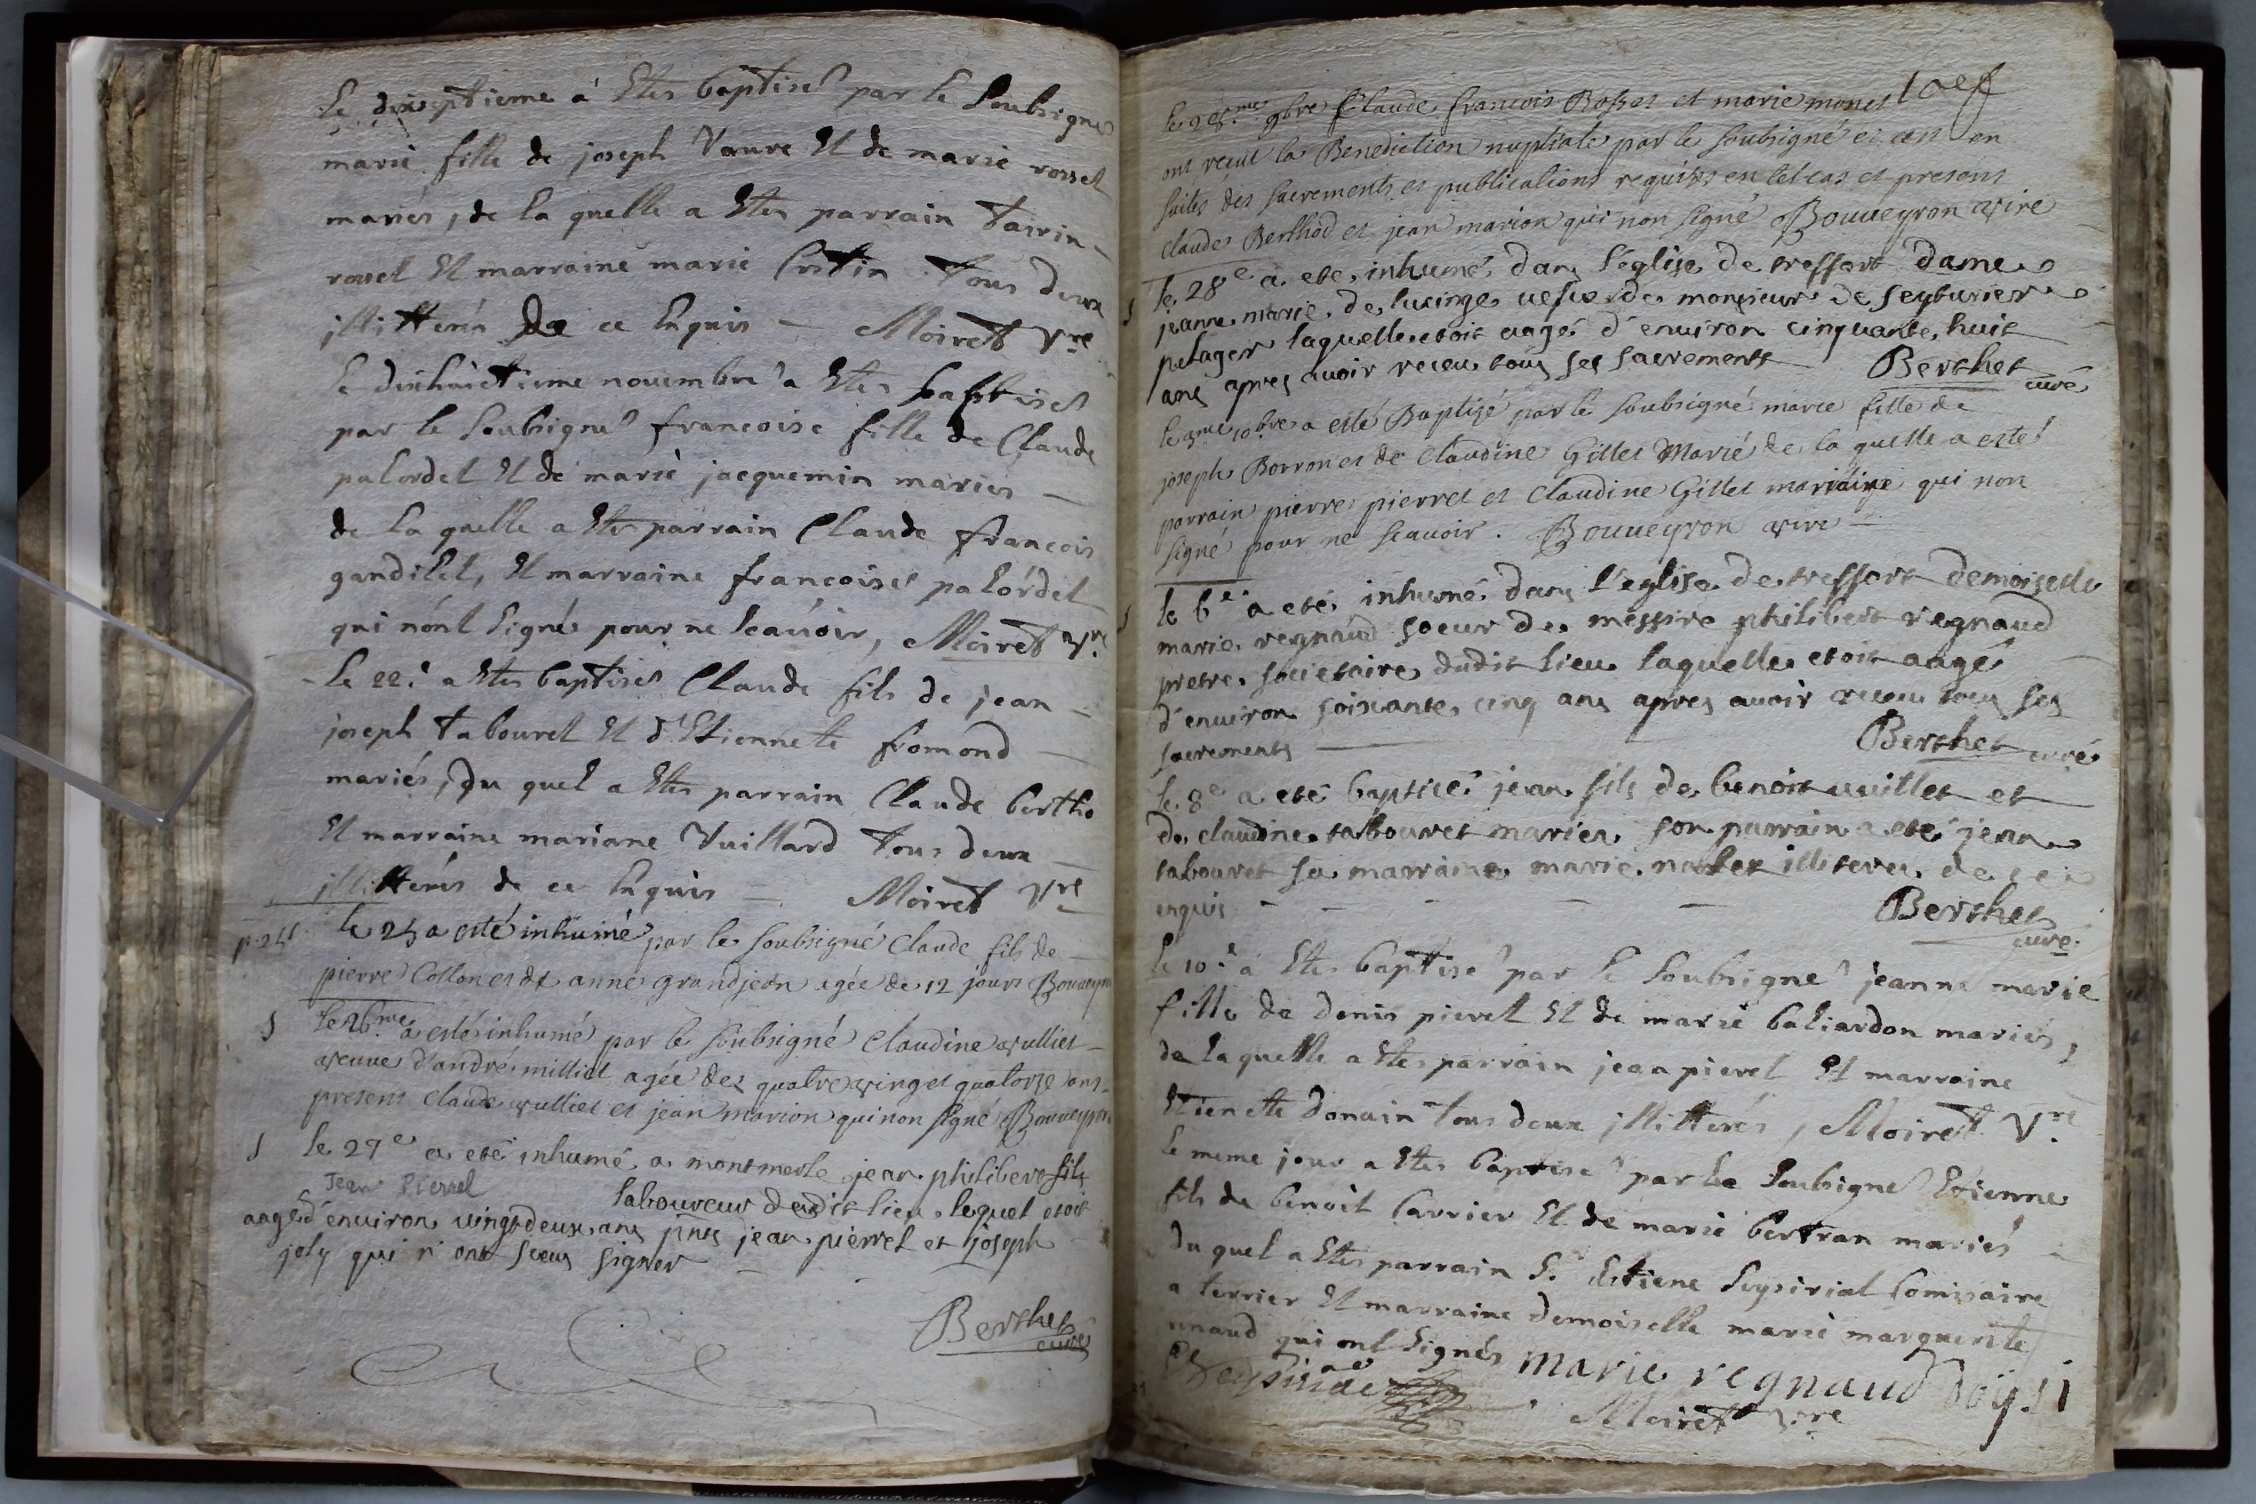 Le dixseptieme à Etes baptisé par le Soubsigné
marie fille de joseph Vauve Et de marie rossel
mariés, de la quelle a Etes parrain
rossel Et marraine marie tous deux
illitterés de ce Enquis — Moiret Vre
le dixhuictieme novembre a Etes baptisé
par le Soubsigné francoise fille de Claude
palordel Et de marie jacquemin mariés —
de la quelle a Etes parrain Claude francois
gandilet, Et marraine francoise palordel
qui n'ont Signés pour ne Scavoir, Moiret Vre
Le 22e a Etes baptisé Claude fils de jean —
joseph tabouret Et d'Etiennete fromond —
mariés, du quel a Etes parrain Claude bertho
Et marraine mariane Vuillard tous deux —
illitterés de ce Enquis — Moiret Vre
le 25 a esté inhumé par le soubsigné Claude fils de —
pierre Collon et de anne grandjean agée de 12 jours Bouveyron
S le 26me a esté inhumé par le soubsigné Claudine vulliet —
veuve d'andré milliet agée de quatre vingt et quatorze ans
presens claude vulliet et jean marion qui non signé Bouveyron
S le 27e a eté inhumé a montmerle jean philibert fils
Jean Pierrel laboureur dudit lieu lequel etoit
aagé d'environ vingtdeux ans pnts jean pierrel et joseph
joly qui n'ont sceu signer —
Berthet
curé
le 9bre Claude francois Rosset et marie monet
ont reçut la Benediction nuptiale par le soubsigné et ce en
suites des sacrements et publications requises en tel cas et presens
claude Berthod et jean marion qui non signé Bouveyron vire
S le 28e a eté inhumé dans l'eglise de treffort dame
jeanne marie de lucinge vefve de monsieur de seyturier
pelager laquelle etoit aagé d'environ cinquante huit
ans apres avoir receu tous ses sacrements — Berthet
curé
le 10bre a esté Baptisé par le soubsigné marie fille de
joseph Borron et de Claudine Gillet Marié de la quelle a esté
parrain pierre pierrel et Claudine Gillet marraine qui non
signé pour ne scavoir. Bouveyron vire —
S le 6e a eté inhumé dans l'eglise de treffort demoiselle
marie regnaud soeur de messire philibert regnaud
pretre societaire dudit lieu laquelle etoit aagé
d'environ soixante cinq ans apres avoir receu tous ses
sacrements — Berthet curé
le 8e a eté baptisé jean fils de benoit vuillet et
de claudine tabouret mariés son parrain a eté jean
tabouret sa marraine marie illiteres de ce
enquis — — — Berthet
curé
Le 10e a Etes baptisé par le Soubsigné jeanne marie
fille de denis pierel Et de marie baliardon mariés,
de la quelle a Etes parrain jean pierel Et marraine
Etienette donain tous deux illitterés, Moiret Vre
le meme jour a Etes baptisé par le Soubsigné Etienne
fils de benoit Carrier Et de marie bertran mariés —
du quel a Etes parrain Sr Estiene Seysirial Comisaire
a terrier Et marraine demoiselle marie marguerite
renaud qui ont Signés marie regnaud
Moiret Vre